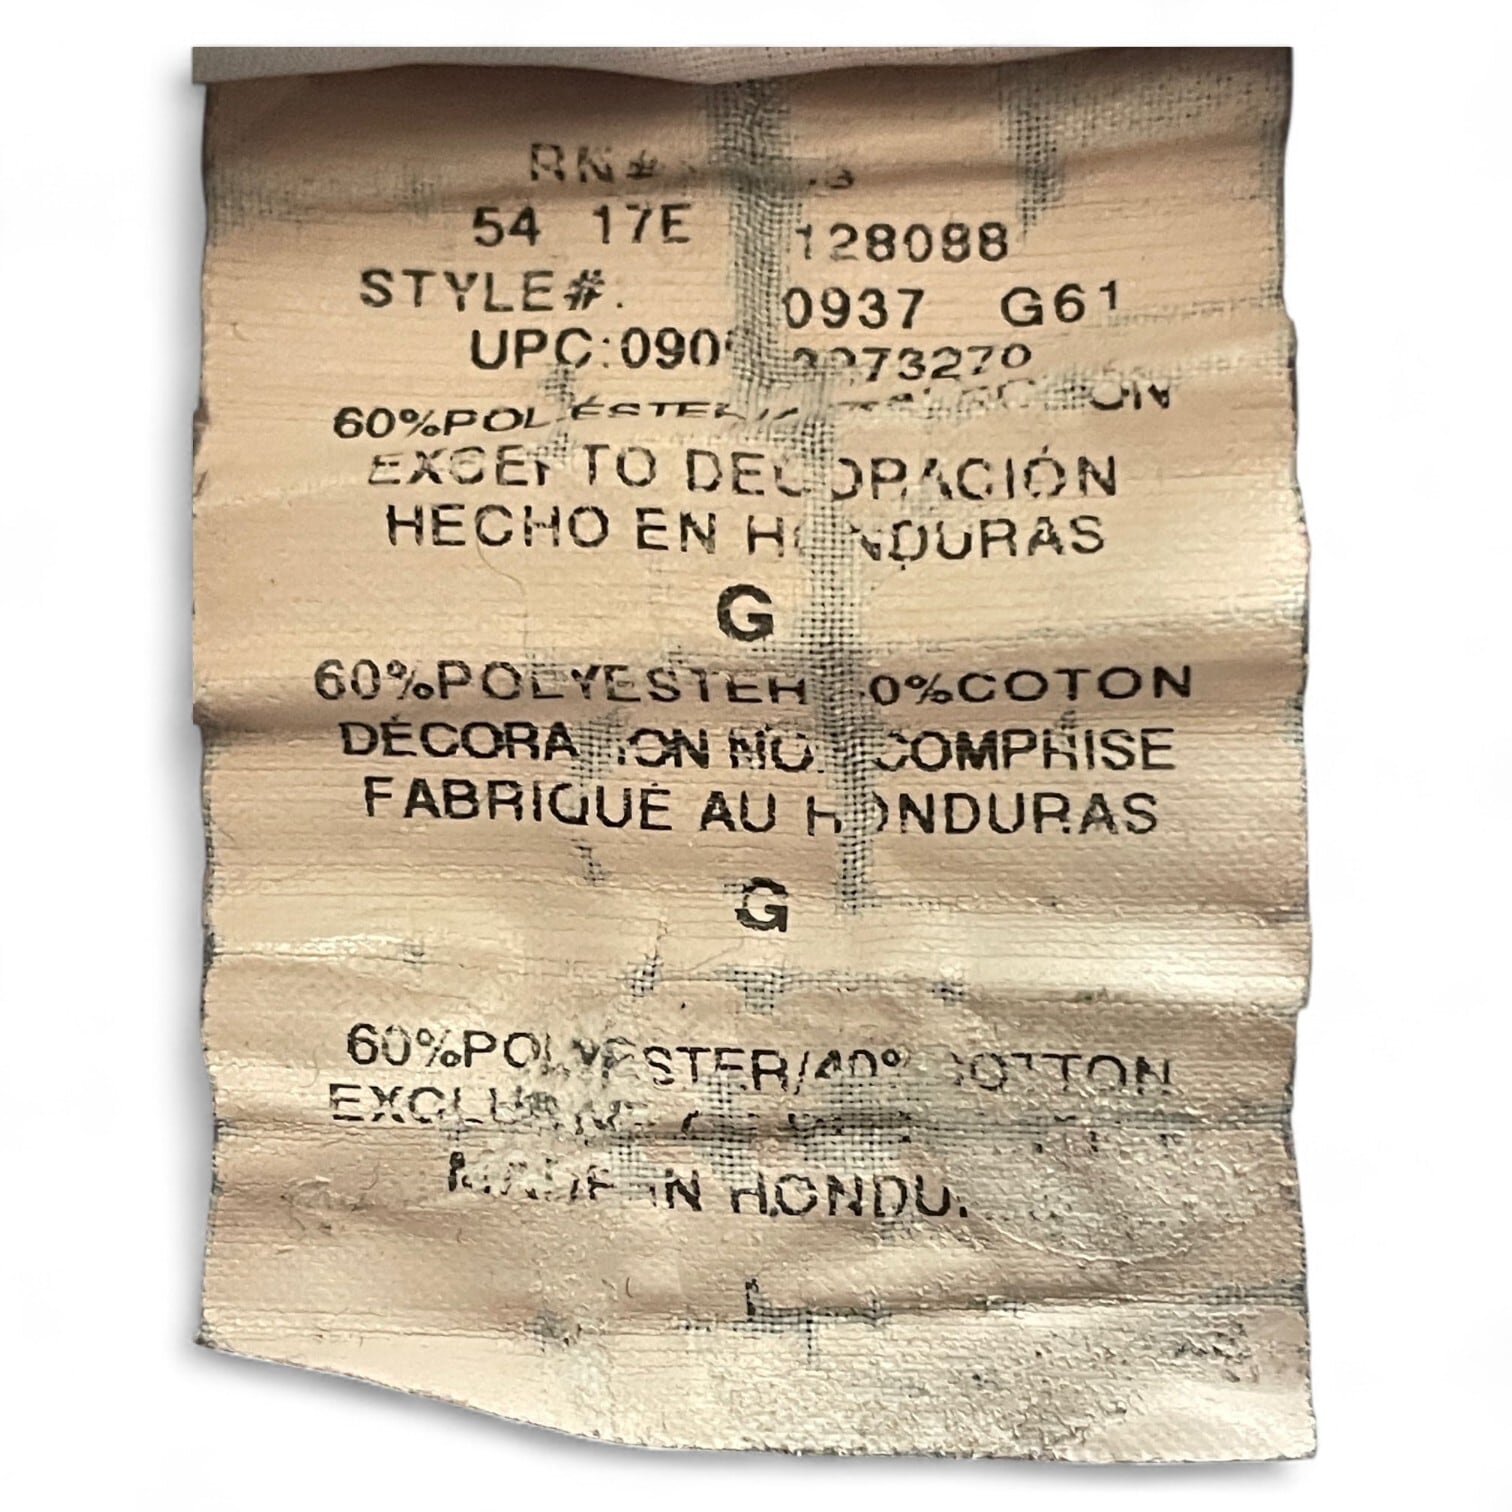 RN#
54 17E 128088
STYLE#. 0937 G61
UPC:
60%
EXCEPTO DECORACIÓN
HECHO EN HONDURAS
G
60%POLYESTER 0%COTON
DÉCORATION NON COMPRISE
FABRIQUÉ AU HONDURAS
G
60%POLYESTER/40% COTTON
EXCLUSIVE
MADE IN HONDU
L